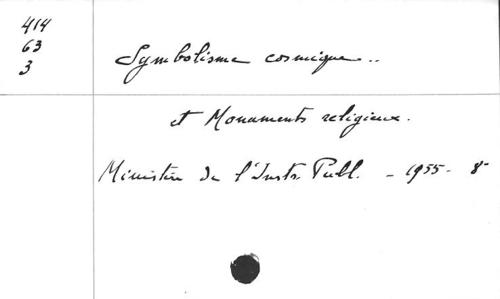 414
63
3
Symbolisme cosmique..
et Monuments religieux.
Ministère de l'Instr. Publ. - 1955 - 8°